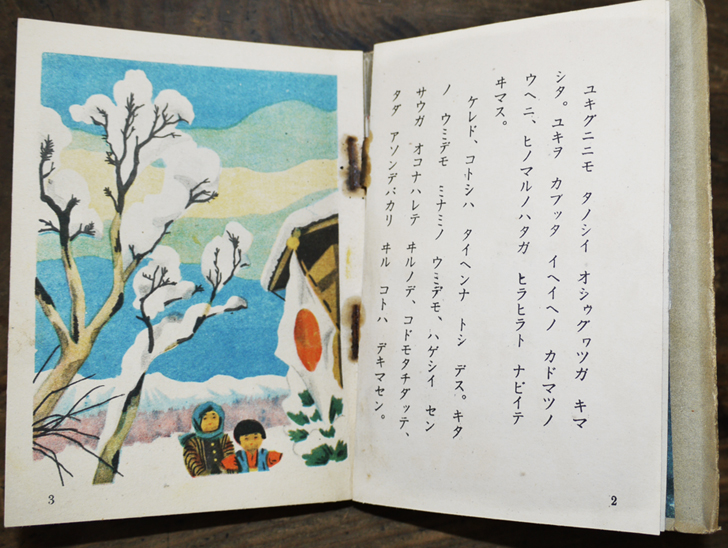 ユキグニニモ タノシイ オシャウグワツガ キマ
シタ。ユキヲ カブッタ イヘイヘノ カドマツノ
ウヘニ、ヒノマルノハタガ ヒラヒラト ナビイテ
ヰマス。
ケレド、コトシハ タイヘンナ トシ デス。キタ
ノ ウミデモ ミナミノ ウミデモ、ハゲシイ セン
サウガ オコナハレテ ヰルノデ、コドモタチダッテ、
タダ アソンデバカリ ヰル コトハ デキマセン。
2
3